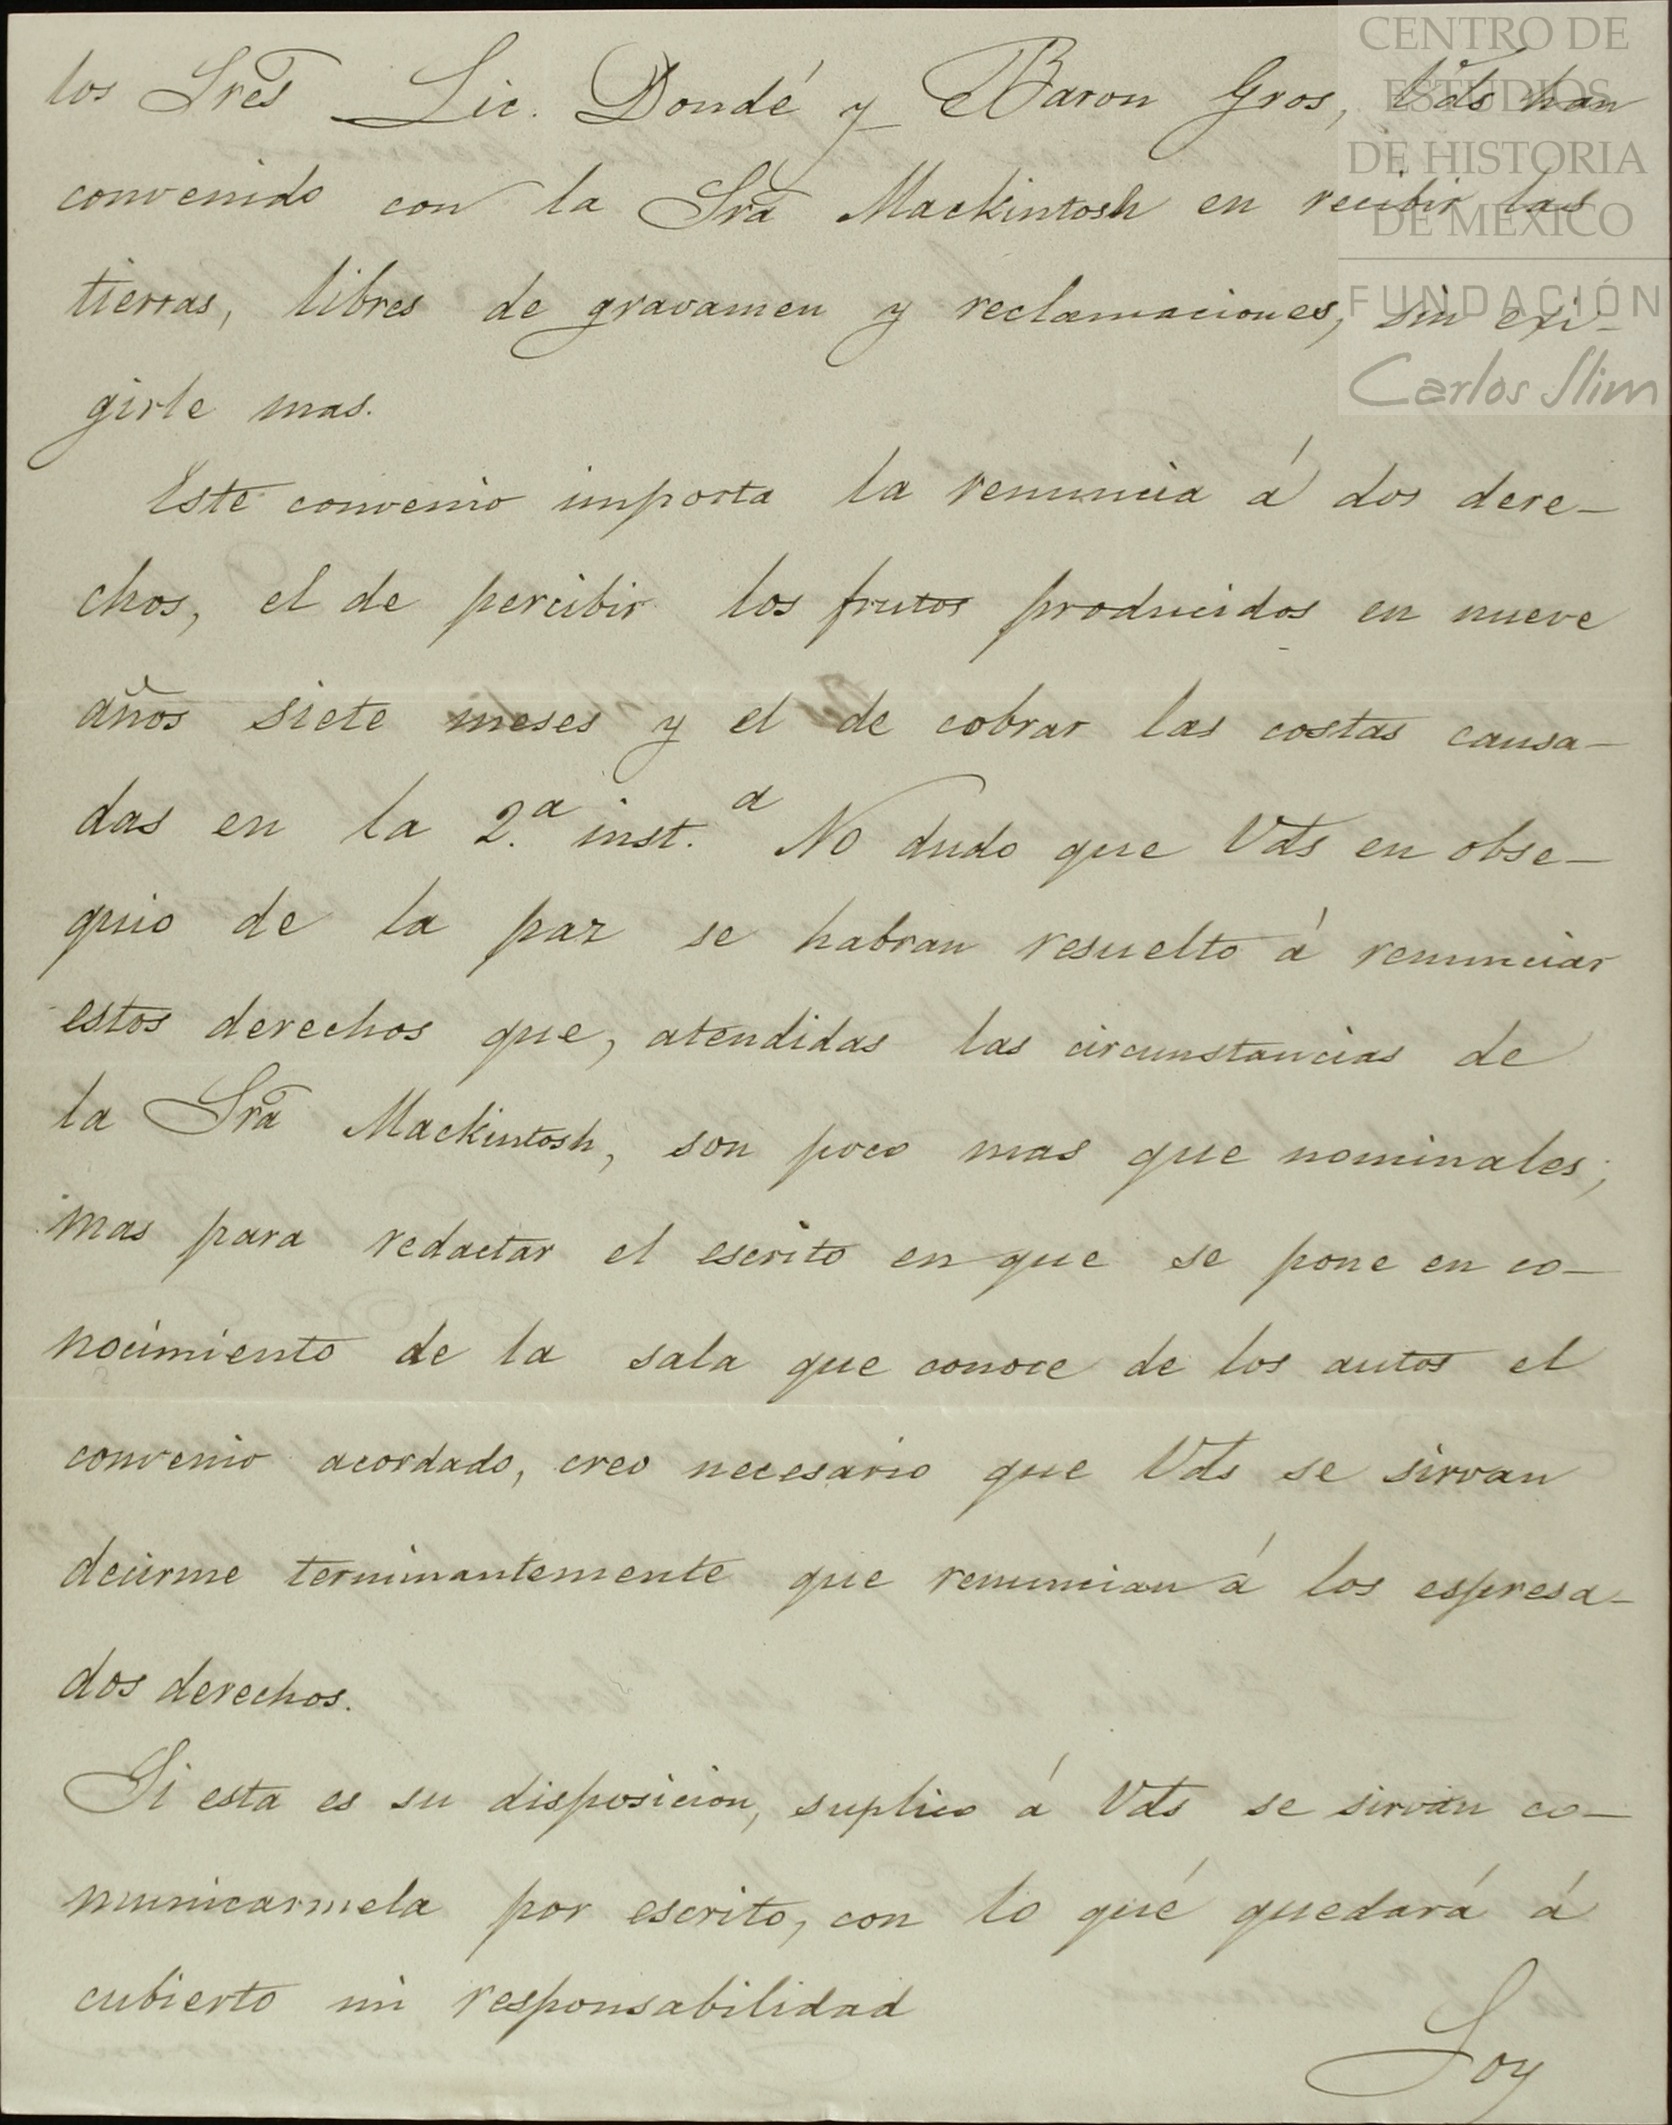 CENTRO DE
ESTUDIOS
DE HISTORIA
DE MEXICO
FUNDACIÓN
Carlos Slim
los Sres Lic. Dondé y Baron Gros, Vds han
convenido con la Sra Mackintosh en recibir las
tierras, libres de gravamen y reclamaciones, sin exi-
girle mas.
Este convenio importa la renuncia á dos dere-
chos, el de percibir los frutos producidos en nueve
años siete meses y el de cobrar las costas causa-
das en la 2.a inst.a No dudo que Vds en obse-
quio de la paz se habran resuelto á renunciar
estos derechos que, atendidas las circunstancias de
la Sra Mackintosh, son poco mas que nominales;
mas para redactar el escrito en que se pone en co-
nocimiento de la sala que conoce de los autos el
convenio acordado, creo necesario que Vds se sirvan
decirme terminantemente que renuncian á los espresa-
dos derechos.
Si esta es su disposicion, suplico á Vds se sirvan co-
municarmela por escrito, con lo qué quedará á
cubierto mi responsabilidad
Soy